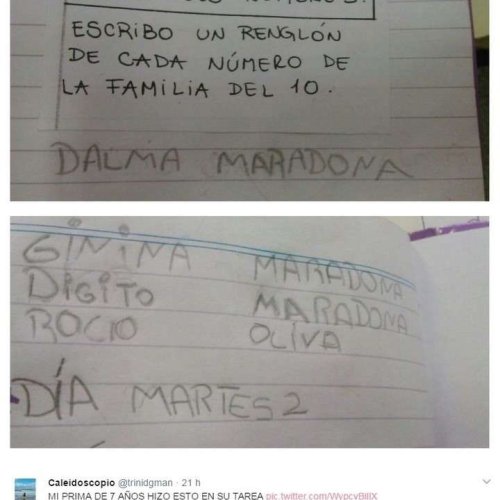 ESCRIBO UN RENGLÓN
DE CADA NÚMERO DE
LA FAMILIA DEL 10.
DALMA MARADONA
GININA MARADONA
DIGITO MARADONA
ROCIO OLIVA
DÍA MARTES 2
Caleidoscopio @trinidgman · 21 h
MI PRIMA DE 7 AÑOS HIZO ESTO EN SU TAREA pic.twitter.com/WvpcvBillX